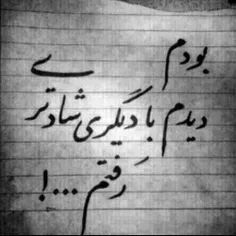 بودم
دیدم با دیگری شادتری
رفتم ...!